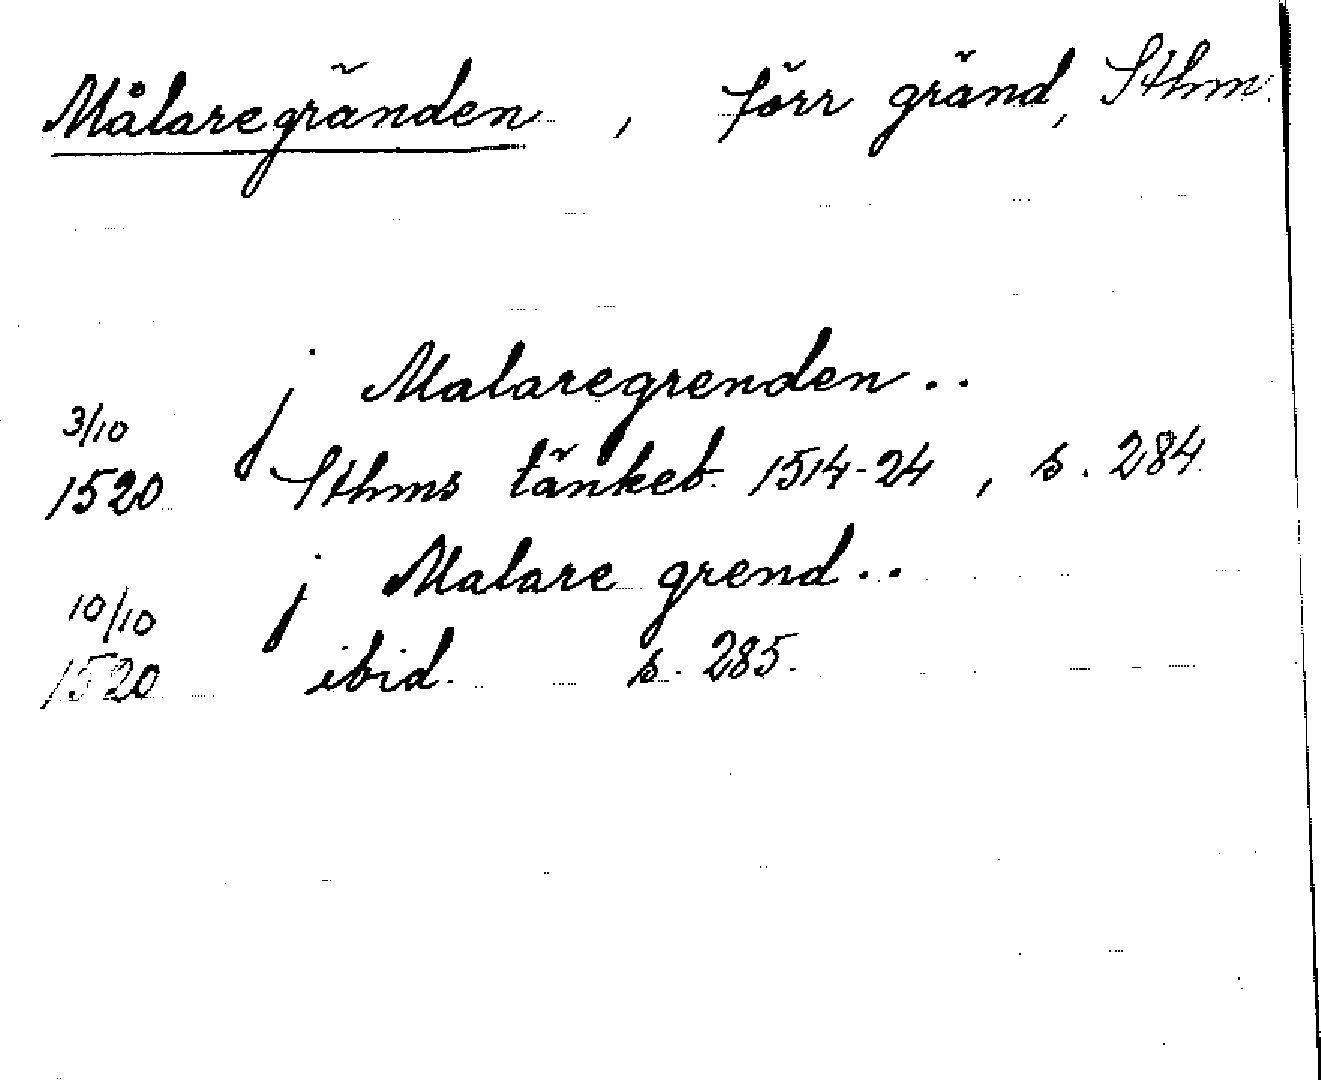 Målaregränden , förr gränd, Sthm.
j Malaregrenden..
3/10
1520 Sthms tänkeb. 1514-24 , s. 284.
j Malare grend..
10/10
1520 ibid. s. 285.